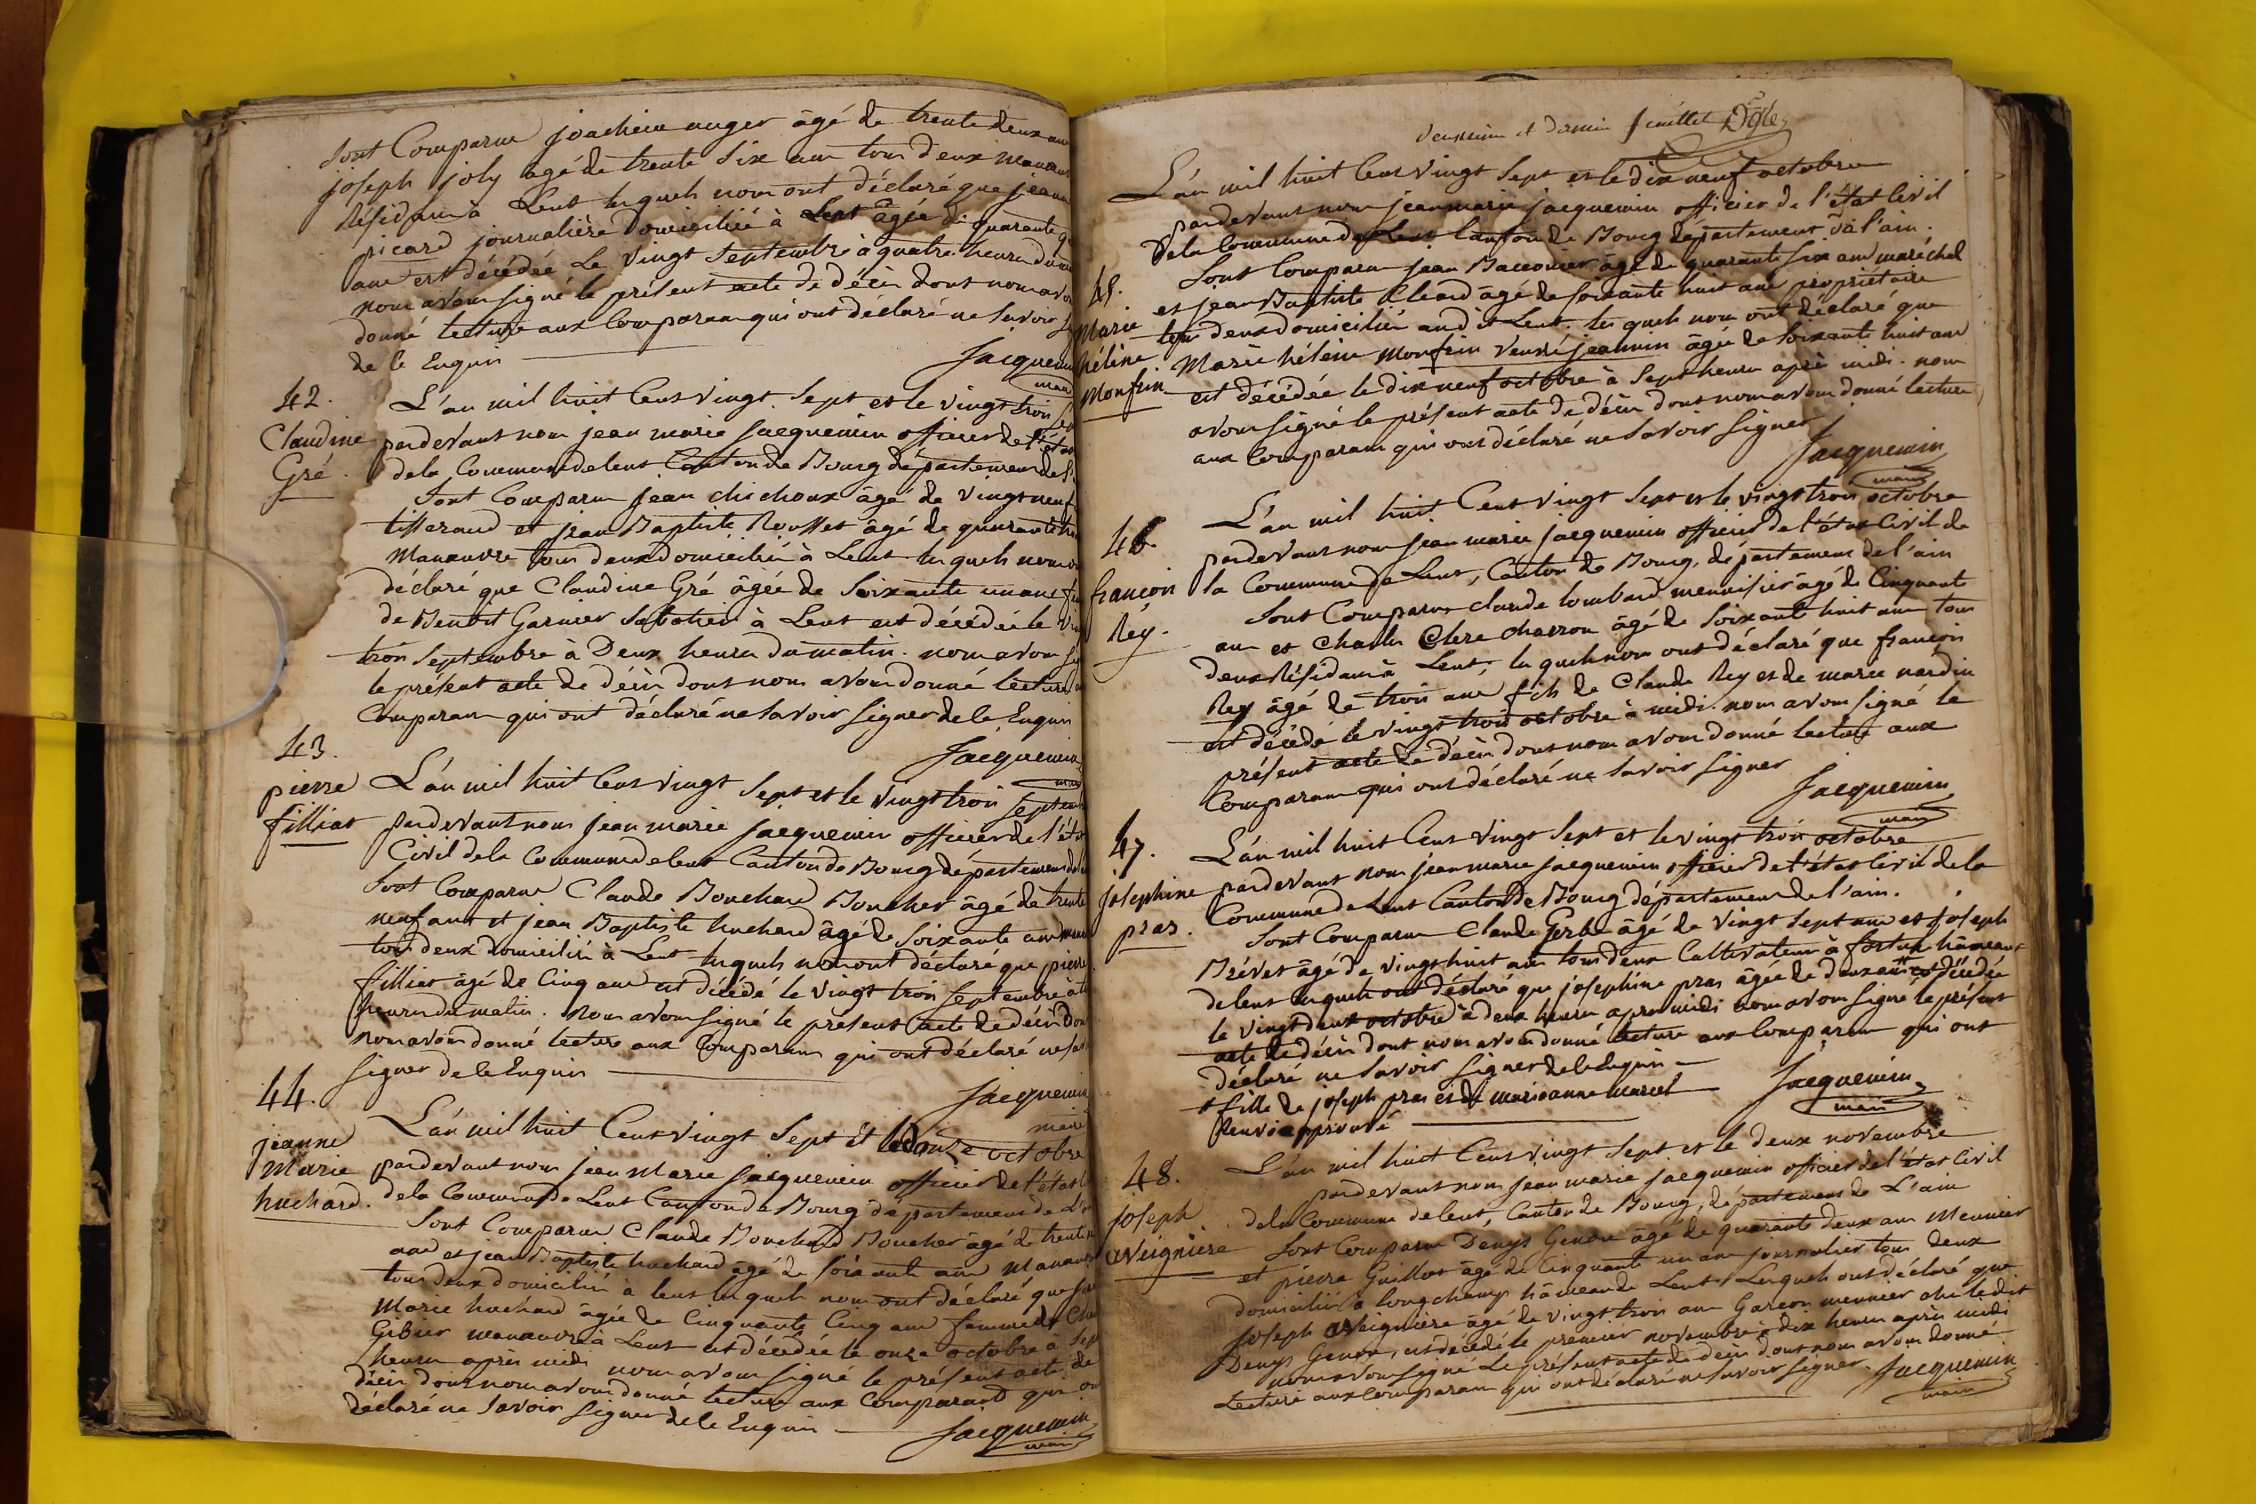 Sont Comparus joachim auger âgé de trente deux ans
joseph joly âgé de trente six ans tous deux manœuvres
Résidans à Lent lesquels nous ont déclaré que jeanne
picard journalière Domiciliée à Lent âgée de quarante
ans est décédée Le vingt Septembre à quatre heures du
nous avons signé le présent acte de décès dont nous avons
donné lecture aux Comparans qui ont déclaré ne savoir
de ce Enquis
Jacquemin
maire
42.
Claudine
Gré.
L'an mil huit Cent vingt Sept et le vingt trois
pardevant nous jean marie jacquemin officier de l'état
de la Commune de lent Canton de Bourg département de
Sont Comparus jean chichoux âgé de vingt neuf
tisserand et jean Baptiste Rousset âgé de quarante
Manœuvre tous deux domiciliés à Lent lesquels nous
déclaré que Claudine Gré âgée de Soixante un ans
de Benoit Garnier Sabotier à Lent est décédée le
trois Septembre à Deux heures du matin. nous avons
le présent acte de décès dont nous avons donné lecture
Comparans qui ont déclaré ne savoir signer de ce Enquis
Jacquemin
maire
43.
pierre
filliat
L'an mil huit Cent vingt Sept et le vingt trois Septembre
pardevant nous jean marie jacquemin officier de l'état
Civil de la Commune de lent Canton de Bourg département
Sont Comparus Claude Bouchard Boucher âgé de trente
neuf ans et jean Baptiste huchard âgé de soixante ans
tous deux domiciliés à Lent lesquels nous ont déclaré que pierre
filliat âgé de Cinq ans est décédé le vingt trois Septembre à
heures du matin. Nous avons signé le présent acte de décès dont
nous avons donné lecture aux Comparans qui ont déclaré ne
signer de ce Enquis
Jacquemin
maire
44.
jeanne
Marie
huchard.
L'an mil huit Cent vingt Sept Et le douze octobre
pardevant nous jean Marie jacquemin officier de l'état
de la Commune de Lent Canton de Bourg département de
Sont Comparus Claude Bouchard Boucher âgé de trente
ans et jean Baptiste huchard âgé de soixante ans Manœuvre
tous deux domiciliés à lent lesquels nous ont déclaré que
Marie huchard âgée de Cinquante Cinq ans femme de
Gibier manœuvre à Lent est décédée le onze octobre à sept
heures après midi nous avons signé le présent acte de
décès dont nous avons donné lecture aux Comparans qui ont
déclaré ne savoir signer de ce Enquis
Jacquemin
maire
deuxième et dernier feuillet
L'an mil huit Cent vingt Sept et le dix neuf octobre
pardevant nous jean marie jacquemin officier de l'état Civil
de la Commune de Lent Canton de Bourg département de l'ain.
45.
Marie
héline
Monfrin
Sont Comparus jean âgé de quarante six ans maréchal
et jean Baptiste âgé de soixante huit ans propriétaire
tous deux domiciliés audit Lent. lesquels nous ont déclaré que
Marie héleine Monfrin veuve jeannin âgée de soixante huit ans
est décédée le dix neuf octobre à sept heures après midi. nous
avons signé le présent acte de décès dont nous avons donné lecture
aux Comparans qui ont déclaré ne savoir signer
Jacquemin
maire
46.
françois
Rey.
L'an mil huit Cent vingt Sept et le vingt trois octobre
pardevant nous jean marie jacquemin officier de l'état Civil de
la Commune de Lent, Canton de Bourg, département de l'ain
Sont Comparus claude lombard menuisier âgé de Cinquante
ans et Charles Clerc charron âgé de soixante huit ans tous
deux Résidans à Lent, lesquels nous ont déclaré que françois
Rey âgé de trois ans fils de Claude Rey et de marie nardin
est décédé le vingt trois octobre à midi. nous avons signé le
présent acte de décès dont nous avons donné lecture aux
Comparans qui ont déclaré ne savoir signer
Jacquemin
maire
47.
josephine
pras.
L'an mil huit Cent vingt Sept et le vingt trois octobre
pardevant nous jean marie jacquemin officier de l'état Civil de la
Commune de Lent Canton de Bourg département de l'ain.
Sont Comparus Claude Gerbe âgé de vingt sept ans et joseph
Brévet âgé de vingt huit ans tous deux Cultivateurs à hâmeaux
de lent lesquels ont déclaré que josephine pras âgée de deux ans + est décédée
le vingt deux octobre à deux heures après midi nous avons signé le présent
acte de décès dont nous avons donné lecture aux Comparans qui ont
déclaré ne savoir signer de ce Enquis
+ fille de joseph pras et de marieanne marcel
Renvoi approuvé
Jacquemin
maire
48.
joseph
Veignière
L'an mil huit Cent vingt Sept et le deux novembre
pardevant nous jean marie jacquemin officier de l'état Civil
de la Commune de lent, Canton de Bourg, département de L'ain
Sont Comparus Denys Genou âgé de quarante deux ans Meunier
et pierre Guillot âgé de Cinquante un ans journalier tous deux
domiciliés à longchamp hâmeau de Lent, Lesquels ont déclaré que
joseph Veignière âgé de vingt trois ans Garçon meunier chez ledit
Denys Genou, est décédé le premier novembre à dix heures après midi
nous avons signé Le présent acte de décès dont nous avons donné
Lecture aux Comparans qui ont déclaré ne savoir signer.
Jacquemin
maire